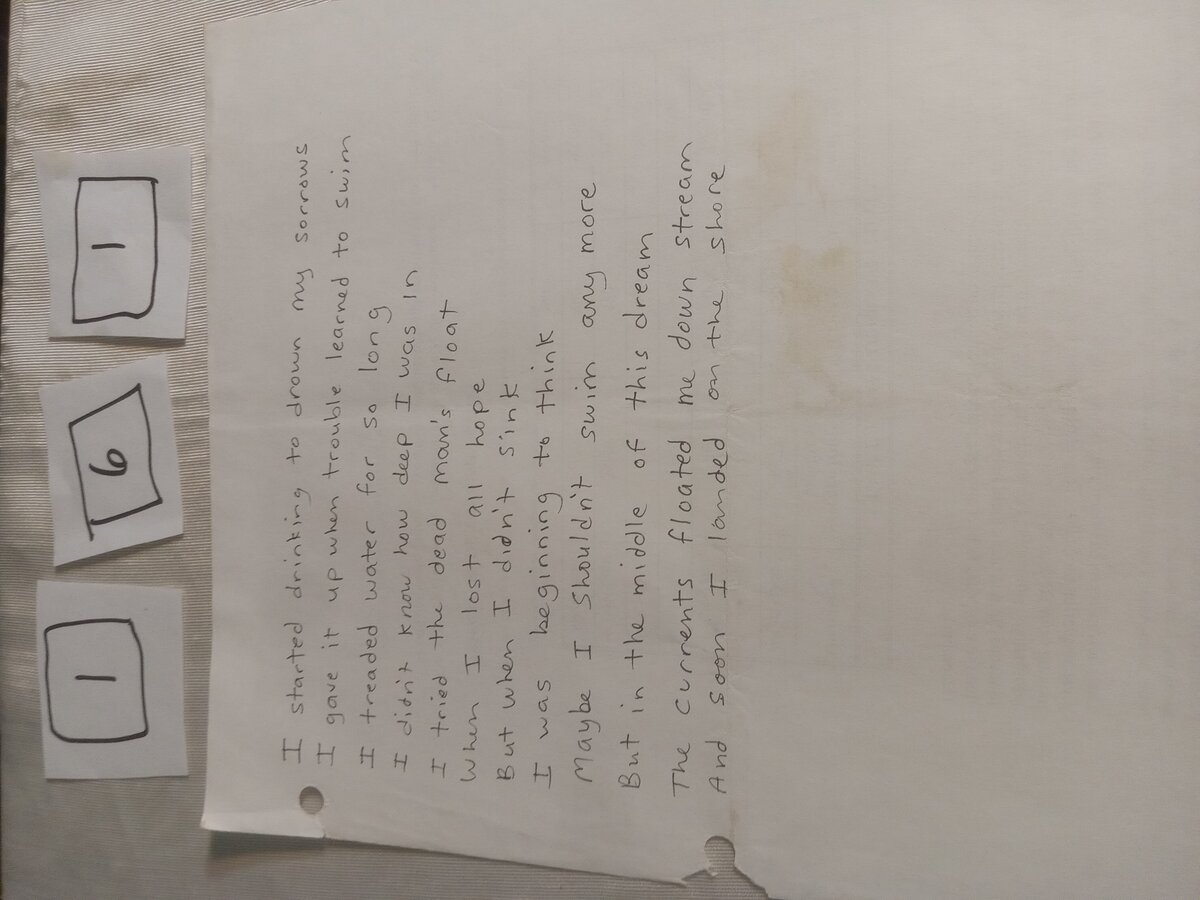 1 6 1
I started drinking to drown my sorrows
I gave it up when trouble learned to swim
I treaded water for so long
I didn't know how deep I was in
I tried the dead man's float
When I lost all hope
But when I didn't sink
I was beginning to think
Maybe I shouldn't swim any more
But in the middle of this dream
The currents floated me down stream
And soon I landed on the shore